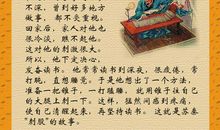 不深，曾到好多地方
做事，都不受重视。
回家后，家人对他也
很冷淡，瞧不起他。
这对他的刺激很大。
所以，他下定决心，
发奋读书。他常常读书到深夜，很疲倦，常
打盹，直想睡觉。于是他想出了一个方法，
准备一把锥子，一打瞌睡，就用锥子往自己
的大腿上刺一下。这样，猛然间感到疼痛，
使自己清醒起来，再坚持读书。这就是苏秦
“刺股”的故事。